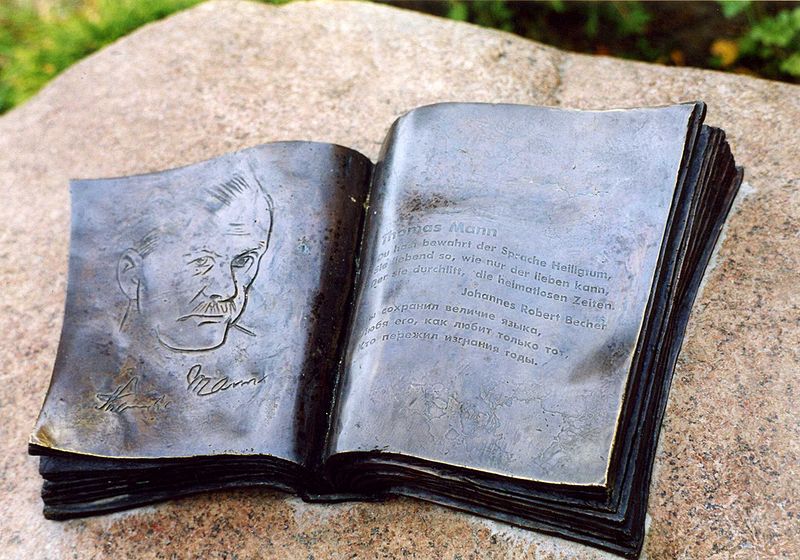 Mann
Thomas Mann
Du hast bewahrt der Sprache Heiligtum,
Sie liebend so, wie nur der lieben kann,
Der sie durchlitt, die heimatlosen Zeiten.
Johannes Robert Becher
Ты сохранил величие языка,
Любя его, как любит только тот,
Кто пережил изгнания годы.